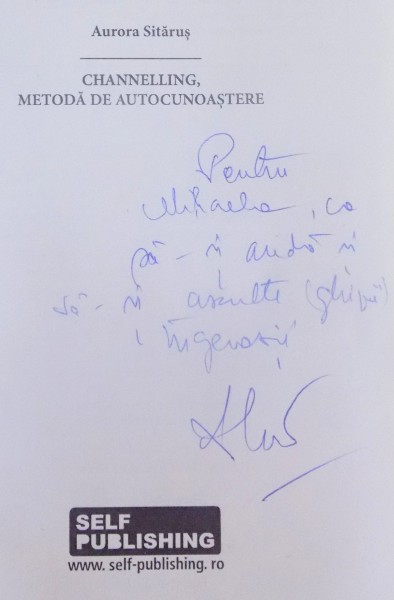 Aurora Sităruș
CHANNELLING,
METODĂ DE AUTOCUNOAȘTERE
Pentru
Mihaela, ca
să-și audă și
să-și asculte (ghizii)
îngerașii
SELF
PUBLISHING
www. self-publishing. ro